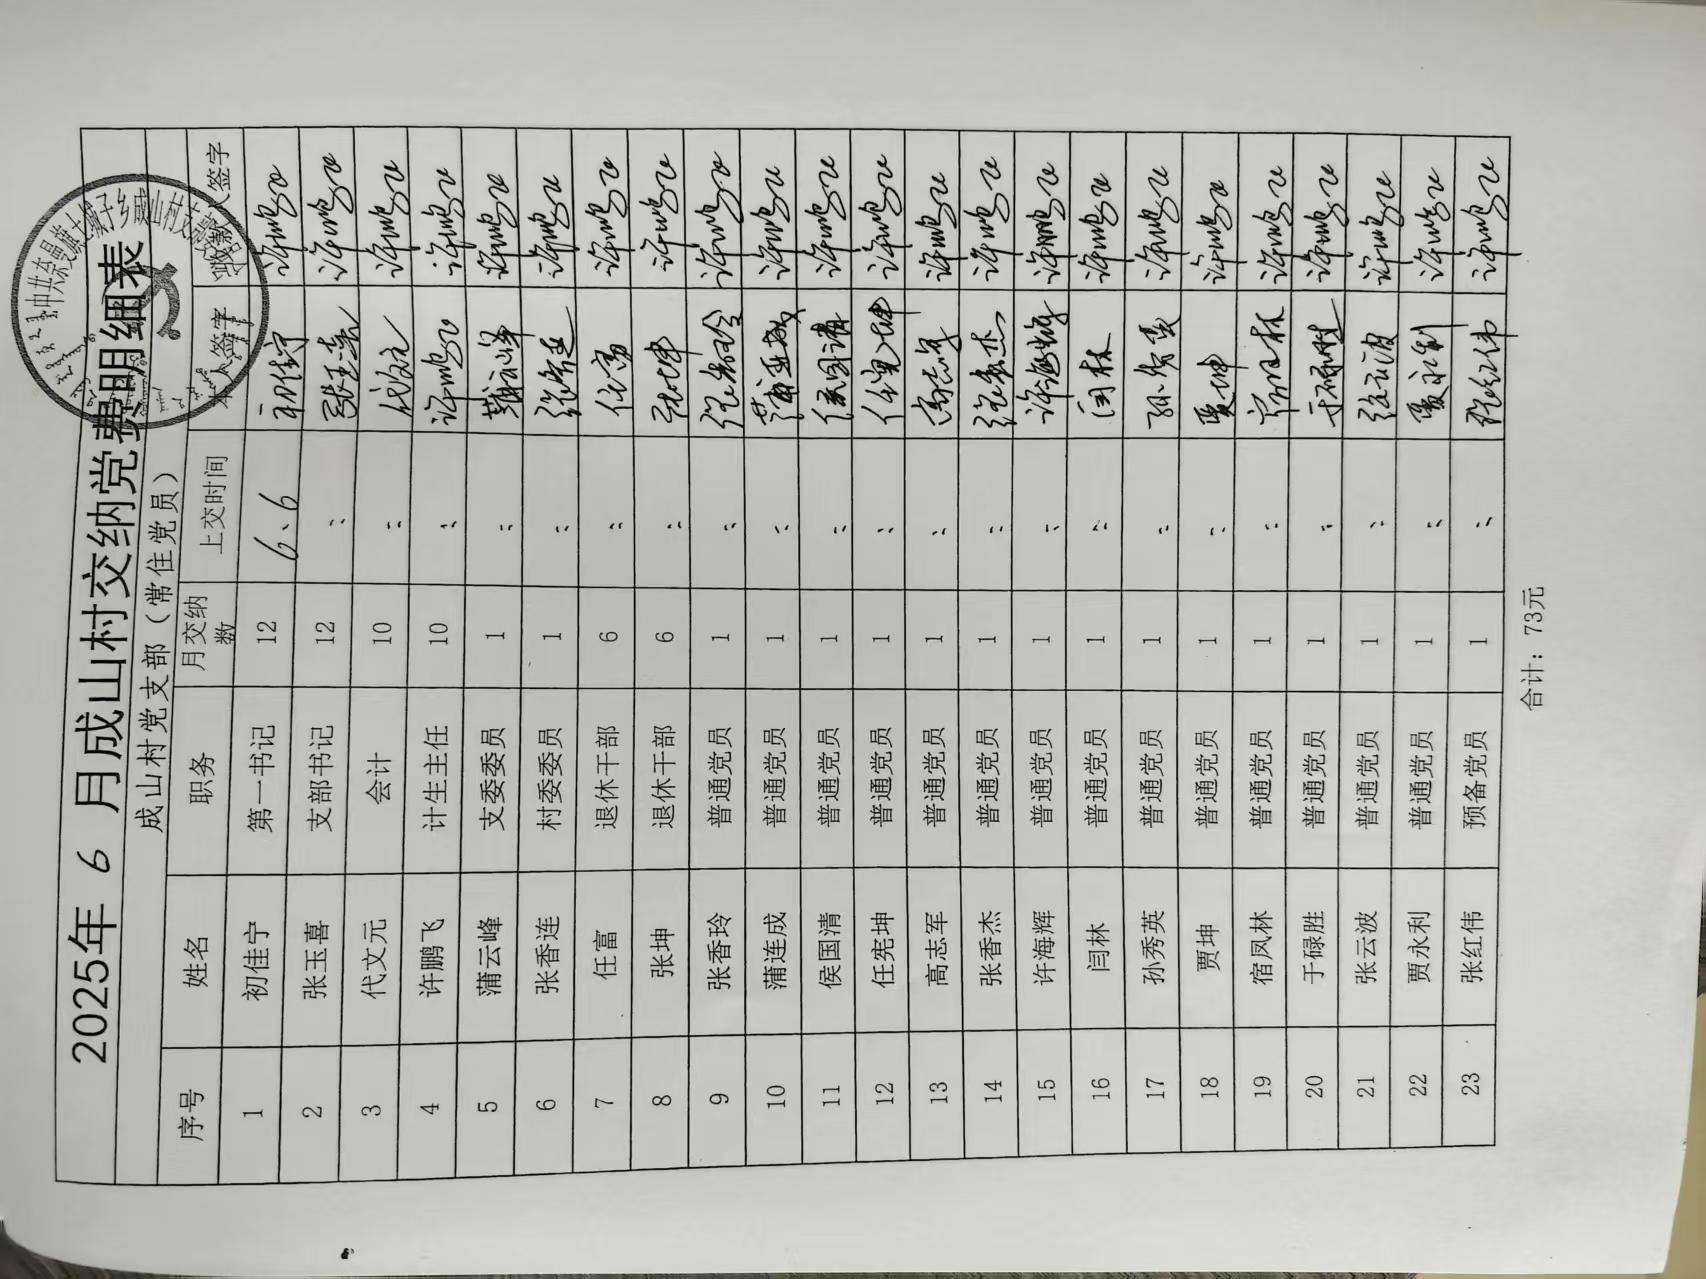 2025年 6 月成山村交纳党费明细表
成山村党支部（常住党员）
序号 姓名 职务 月交纳数 上交时间 本人签字 收款人（签字
1 初佳宁 第一书记 12 6、6 初佳宁 许鹏飞
2 张玉喜 支部书记 12 〃 张玉喜 许鹏飞
3 代文元 会计 10 〃 代文元 许鹏飞
4 许鹏飞 计生主任 10 〃 许鹏飞 许鹏飞
5 蒲云峰 支委委员 1 〃 蒲云峰 许鹏飞
6 张香连 村委委员 1 〃 张香连 许鹏飞
7 任富 退休干部 6 〃 任富 许鹏飞
8 张坤 退休干部 6 〃 张坤 许鹏飞
9 张香玲 普通党员 1 〃 张香玲 许鹏飞
10 蒲连成 普通党员 1 〃 蒲连成 许鹏飞
11 侯国清 普通党员 1 〃 侯国清 许鹏飞
12 任宪坤 普通党员 1 〃 任宪坤 许鹏飞
13 高志军 普通党员 1 〃 高志军 许鹏飞
14 张香杰 普通党员 1 〃 张香杰 许鹏飞
15 许海辉 普通党员 1 〃 许海辉 许鹏飞
16 闫林 普通党员 1 〃 闫林 许鹏飞
17 孙秀英 普通党员 1 〃 孙秀英 许鹏飞
18 贾坤 普通党员 1 〃 贾坤 许鹏飞
19 宿凤林 普通党员 1 〃 宿凤林 许鹏飞
20 于碌胜 普通党员 1 〃 于碌胜 许鹏飞
21 张云波 普通党员 1 〃 张云波 许鹏飞
22 贾永利 普通党员 1 〃 贾永利 许鹏飞
23 张红伟 预备党员 1 〃 张红伟 许鹏飞
合计：73元